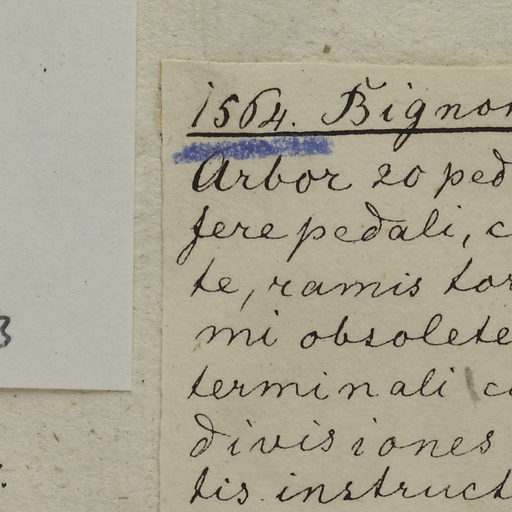 1564. Bignon
Arbor 20 ped
fere pedali, c
te, ramis tor
mi obsolete
terminali co
divisiones
tis instruct
3